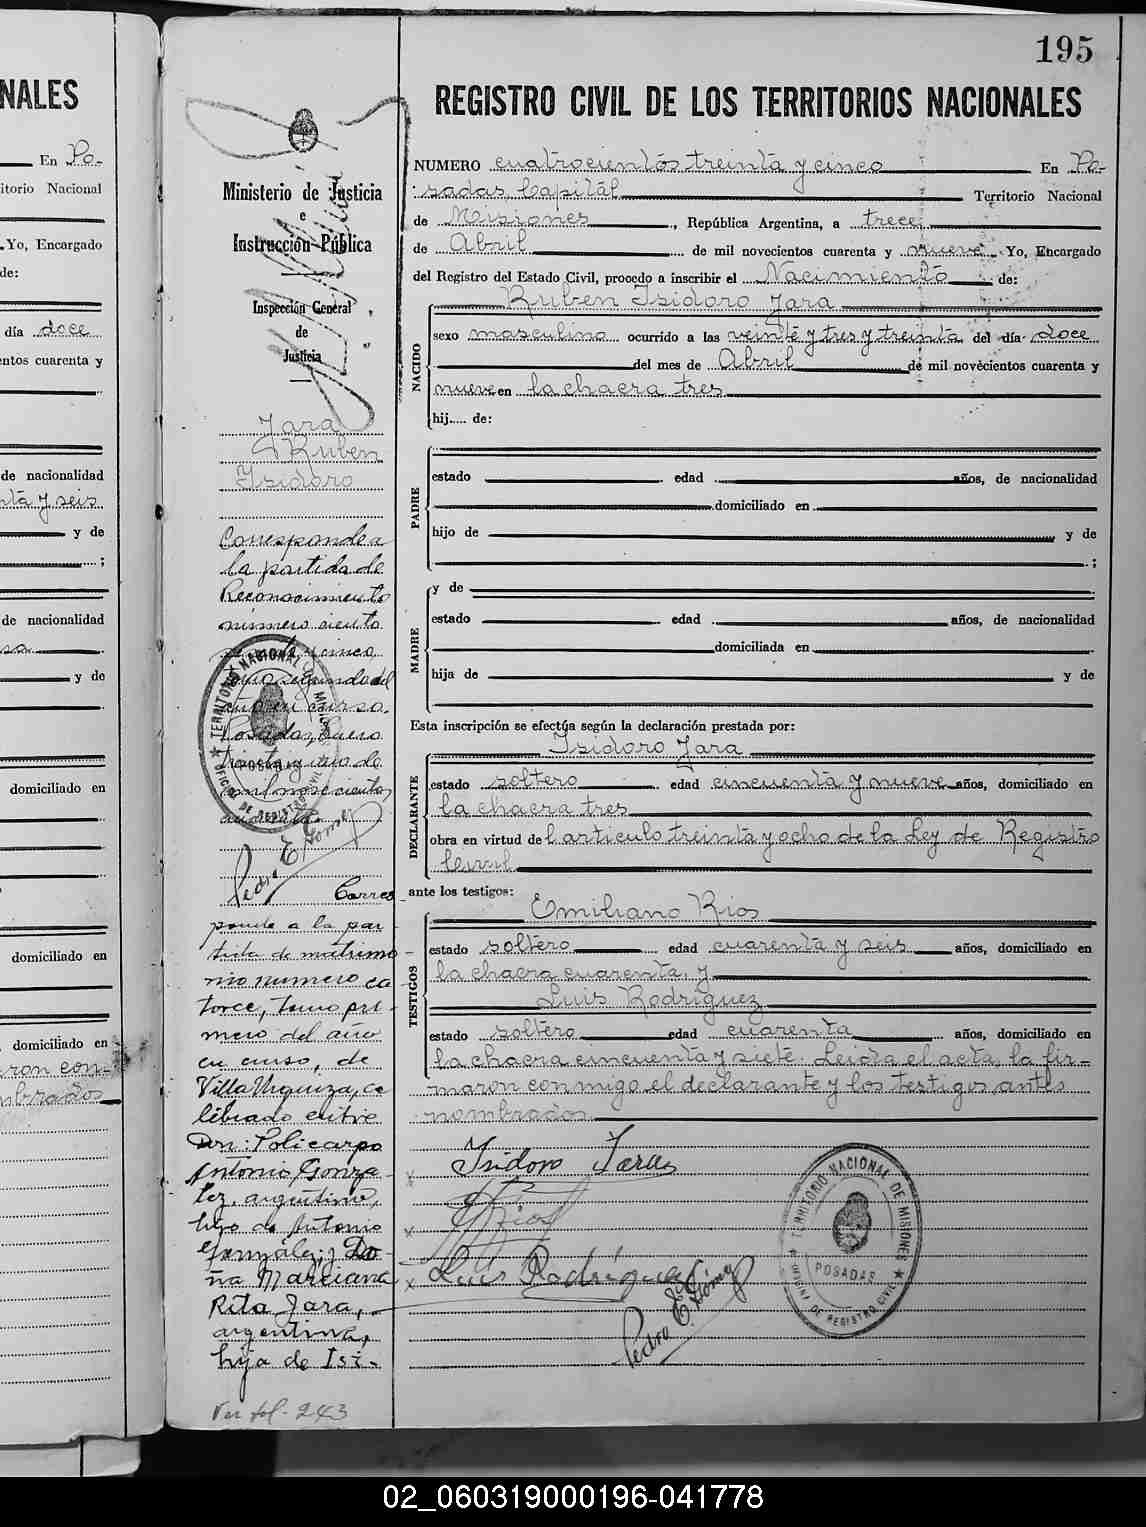 NALES
En Po-
itorio Nacional
Yo, Encargado
de:
día doce
entos cuarenta y
de nacionalidad
nta y seis
y de
;
de nacionalidad
y de
domiciliado en
domiciliado en
domiciliado en
ron con-
mbrados
195
Ministerio de Justicia
e
Instrucción Pública
Inspección General
de
Justicia
Jara
Ruben
Isidoro
Corresponde a
la partida de
Reconocimiento
número ciento
cinco,
tomo segundo del
año en curso.
Posadas, Enero
treinta y uno de
mil novecientos
Pedro E. Gómez
Corres
ponde a la par-
tida de matrimo
nio numero ca
torce, tomo pri-
mero del año
en curso, de
Villa Urquiza, ce
lebrado entre
Don: Policarpo
Antonio Gonza
lez, argentino,
hijo de Antonio
González; y Do-
ña Marciana
Rita Jara,
argentina,
hija de Isi-
Ver fol. 243
REGISTRO CIVIL DE LOS TERRITORIOS NACIONALES
NUMERO cuatrocientos treinta y cinco En Po-
sadas, Capital Territorio Nacional
de Misiones, República Argentina, a trece
de Abril de mil novecientos cuarenta y nueve. Yo, Encargado
del Registro del Estado Civil, procedo a inscribir el Nacimiento de:
NACIDO
Ruben Isidoro Jara
sexo masculino ocurrido a las veinte y tres y treinta del día doce
del mes de Abril de mil novecientos cuarenta y
nueve en la chacra tres
hij..... de:
PADRE
estado edad años, de nacionalidad
domiciliado en
hijo de y de
;
MADRE
y de
estado edad años, de nacionalidad
domiciliada en
hija de y de
Esta inscripción se efectúa según la declaración prestada por:
DECLARANTE
Isidoro Jara
estado soltero edad cincuenta y nueve años, domiciliado en
la chacra tres
obra en virtud de l articulo treinta y ocho de la Ley de Registro
Civil
ante los testigos:
TESTIGOS
Emiliano Rios
estado soltero edad cuarenta y seis años, domiciliado en
la chacra cuarenta, y
Luis Rodríguez
estado soltero edad cuarenta años, domiciliado en
la chacra cincuenta y siete. Leida el acta, la fir-
maron conmigo el declarante y los testigos antes
nombrados
x Isidoro Jara
x E Rios
x Luis Rodríguez
Pedro E. Gómez
TERRITORIO NACIONAL DE MISIONES
POSADAS
OFICINA DE REGISTRO CIVIL
TERRITORIO NACIONAL DE MISIONES
POSADAS
OFICINA DE REGISTRO CIVIL
02_060319000196-041778